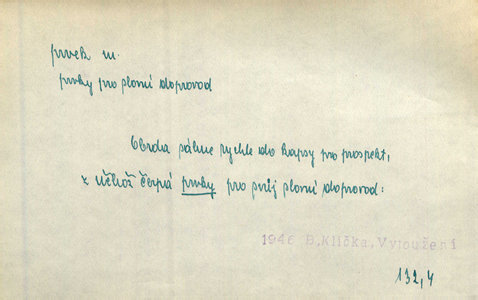 prvek m.
prvky pro slovní doprovod
Obrda sáhne rychle do kapsy pro prospekt,
z něhož čerpá prvky pro svůj slovní doprovod:
1946 B.Klička, Vytoužení
132,4